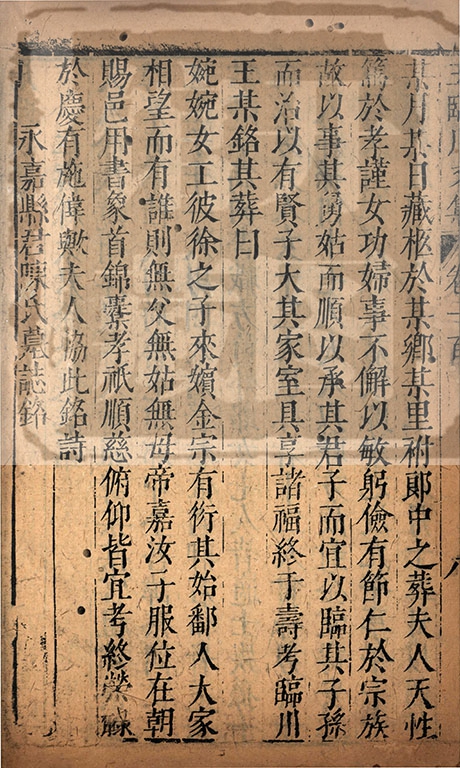 王臨川文集卷一百
八
某月某日藏柩於某鄉某里祔郎中之葬夫人天性
篤於孝謹女功婦事不懈以敏躬儉有節仁於宗族
故以事其舅姑而順以承其君子而宜以臨其子孫
而治以有賢子大其家室具享諸福終于壽考臨川
王某銘其葬曰
婉婉女工彼徐之子來嬪金宗有衍其始鄱人大家
相望而有誰則無父無姑無母帝嘉汝子服位在朝
賜邑用書象首錦橐孝祇順慈俯仰皆宜考終榮祿
於慶有施偉歟夫人協此銘詩
永嘉縣君陳氏墓誌銘